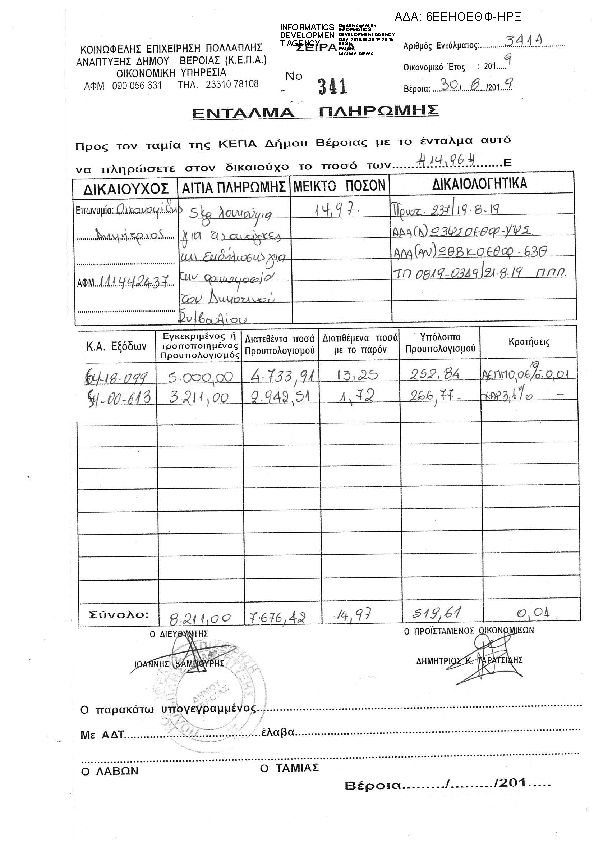 ΑΔΑ: 6ΕΕΗΟΕΘΦ-ΗΡΞ
INFORMATICS
DEVELOPMEN
T AGENCY
ΚΟΙΝΩΦΕΛΗΣ ΕΠΙΧΕΙΡΗΣΗ ΠΟΛΛΑΠΛΗΣ
ΑΝΑΠΤΥΞΗΣ ΔΗΜΟΥ ΒΕΡΟΙΑΣ (Κ.Ε.Π.Α.)
ΟΙΚΟΝΟΜΙΚΗ ΥΠΗΡΕΣΙΑ
ΑΦΜ 090 056 331 ΤΗΛ. 23310 78108
ΣΕΙΡΑ Α
No 341
Αριθμός Εντάλματος: 341Α
Οικονομικό Έτος : 2019
Βέροια: 30.8/2019
ΕΝΤΑΛΜΑ ΠΛΗΡΩΜΗΣ
Προς τον ταμία της ΚΕΠΑ Δήμου Βέροιας με το ένταλμα αυτό
να πληρώσετε στον δικαιούχο το ποσό των #14,96# Ε
ΔΙΚΑΙΟΥΧΟΣ ΑΙΤΙΑ ΠΛΗΡΩΜΗΣ ΜΕΙΚΤΟ ΠΟΣΟΝ ΔΙΚΑΙΟΛΟΓΗΤΙΚΑ
Επωνυμία: Οικονομίδης
Δημήτριος
ΑΦΜ 111442437
για τις ανάγκες
της εκδήλωσης για
την ορκωμοσία
του Δημοτικού
Συμβουλίου
14,97.
Πρωτ. 237/19-8-19
ΑΔΑ(Δ)ΩΞΨΣΟΕΘΦ-ΥΨΣ
ΑΔΑ(ΑΝ)ΩΘΒΚΟΕΘΦ-63Θ
ΤΠ 0819-0319/21.8.19 Π.Π.Π.
Κ.Α. Εξόδων
Εγκεκριμένος ή τροποποιημένος Προυπολογισμός
Διατεθέντα ποσά Προυπολογισμού
Διατιθέμενα ποσά με το παρόν
Υπόλοιπα Προυπολογισμού
Κρατήσεις
64-18-099 5.000,00 4.733,91 13,25 252,84 ΑΕΠΠ 0,06% 0,01
61-00-613 3.211,00 2.942,51 1,72 266,77 ΧΑΡ 3,6% -
Σύνολο: 8.211,00 7.676,42 14,97 519,61 0,01
Ο ΔΙΕΥΘΥΝΤΗΣ
Ο ΠΡΟΪΣΤΑΜΕΝΟΣ ΟΙΚΟΝΟΜΙΚΩΝ
ΙΩΑΝΝΗΣ ΒΑΜΒΟΥΡΗΣ
ΔΗΜΗΤΡΙΟΣ Κ. ΤΑΡΑΤΣΙΔΗΣ
Ο παρακάτω υπογεγραμμένος
Με ΑΔΤ έλαβα
Ο ΛΑΒΩΝ Ο ΤΑΜΙΑΣ
Βέροια........./........./201.....